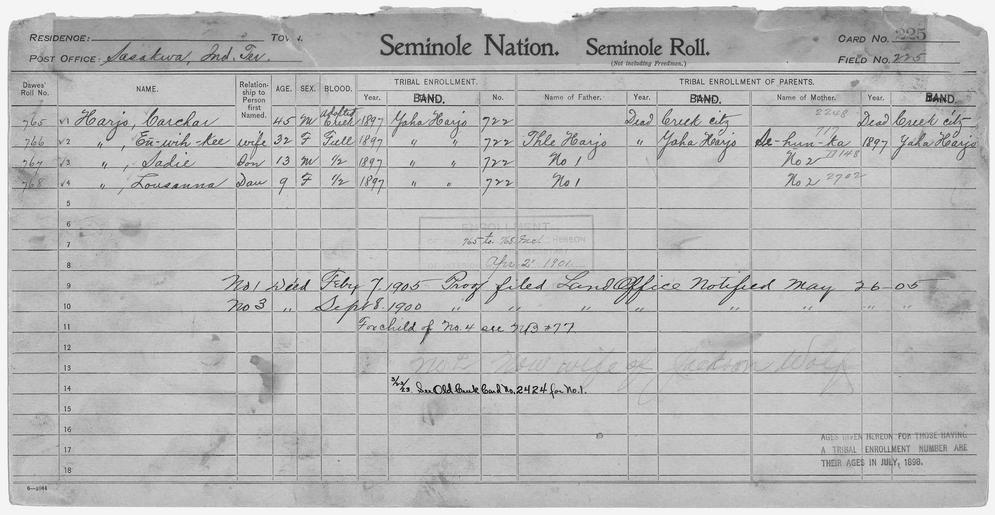 RESIDENCE: TOWN.
Seminole Nation. Seminole Roll. CARD NO. 225
POST OFFICE: Sasakwa, Ind. Ter. (Not including Freedmen.) FIELD NO. 225
Dawes' Roll No. NAME. Relationship to Person first Named. AGE. SEX. BLOOD. TRIBAL ENROLLMENT. TRIBAL ENROLLMENT OF PARENTS.
Year. BAND. No. Name of Father. Year. BAND. Name of Mother. Year. BAND.
765 √1 Harjo, Carchar 45 M Adopted Creek 1897 Yaha Harjo 722 Dead Creek city 2248 Dead Creek city
766 √2 " , En-wih-kee wife 32 F Full 1897 " " 722 Thle Harjo " Yaha Harjo Se-hun-ka 717 1897 Yaha Harjo
767 √3 " , Sadie Don 13 M 1/2 1897 " " 722 No 1 No 2
768 √4 " , Lousanna Dau 9 F 1/2 1897 " " 722 No 1 No 2 2702
5
6 ENROLLMENT
7 765 to 768 Incl HEREON
8 Apr 2 1901
9 No 1 Died Feby 7, 1905 Proof filed Land Office Notified May 26-05
10 No 3 " Sept 8, 1900 " " " " " " "
11 For child of No. 4 see NB #77
12
13 No 2 Now wife of Jackson Wolf
14 3/22/23 See Old Creek Card No. 2424 for No. 1.
15
16 AGES GIVEN HEREON FOR THOSE HAVING
17 A TRIBAL ENROLLMENT NUMBER ARE
18 THEIR AGES IN JULY, 1898.